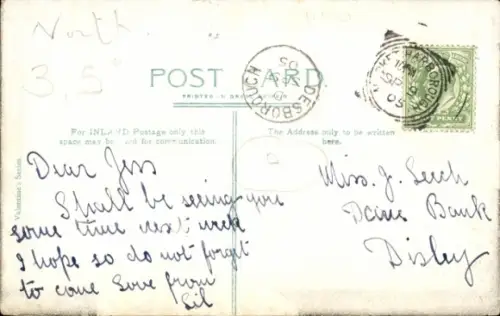 North.
3,5
POST CARD
PRINTED IN
For INLAND Postage only this
space may be used for communication.
The Address only to be written
here.
Valentine's Series
DESBOROUGH
05
MARKET HARBOROUGH
SP
05
PENNY
Dear Jess
Shall be seeing you
some time next week
I hope so do not forget
to come love from
Sil
Miss. J. Leech
Dane Bank
Disley